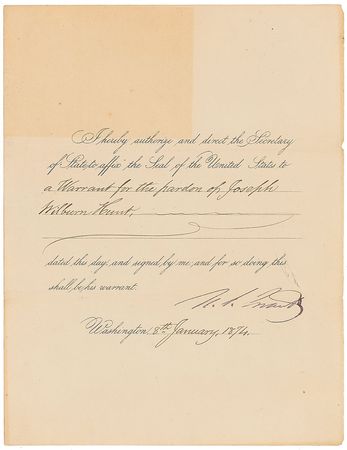 I hereby authorize and direct the Secretary
of State to affix the Seal of the United States to
a Warrant for the pardon of Joseph
Wilburn Hunt,
dated this day, and signed by me, and for so doing this
shall be his warrant.
U. S. Grant
Washington, 8th January, 1874.